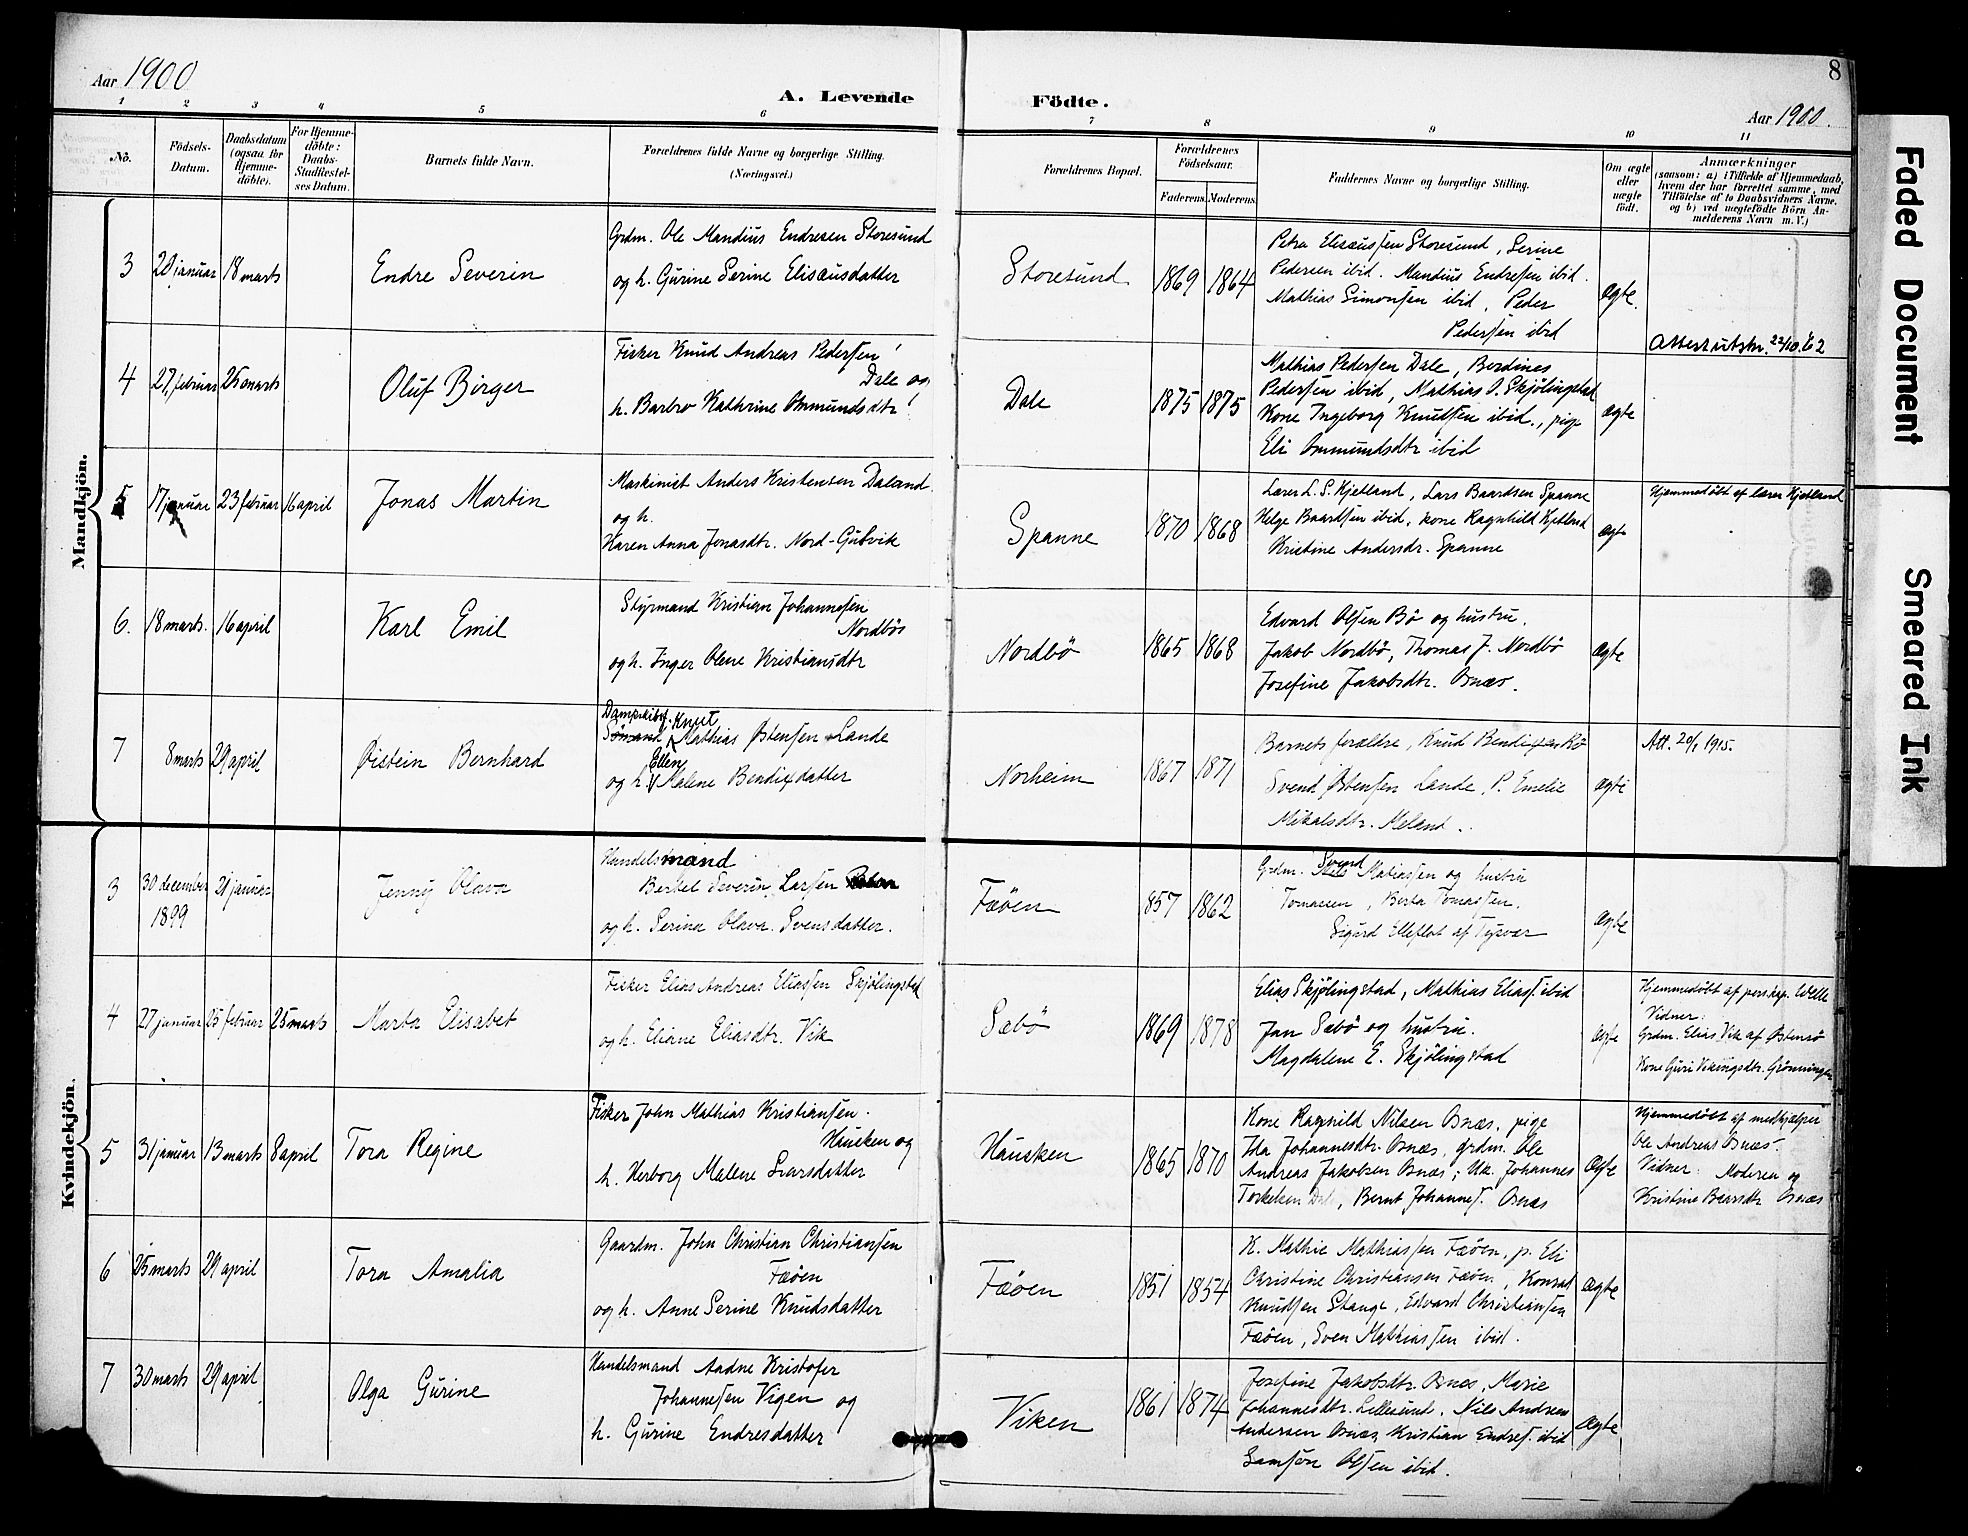 Aar 1900
A. Levende Födte.
Aar 1900.
8
Faded Document
Smeared Ink
1 2 3 4 5 6 7 8 9 10 11
No.
Födsels-Datum.
Daabsdatum (ogsaa for Hjemme-döbte).
For Hjemme-döbte: Daabs-Stadfæstel-ses Datum.
Barnets fulde Navn.
Forældrenes fulde Navne og borgerlige Stilling.
(Næringsvei.)
Forældrenes Bopæl.
Forældrenes Födselsaar.
Faderens Moderens
Faddernes Navne og borgerlige Stilling.
Om ægte eller uægte födt.
Anmærkninger
(saasom: a) i Tilfælde af Hjemmedaab,
hvem der har forrettet samme, med
Tilföielse af to Daabsvidners Navne,
og b) ved uægtefödte Börn An-
melderens Navn m. V.)
Mandkjön.
3 20 januar 18 marts
Endre Severin
Grdm. Ole Mandius Endresen Storesund
og h. Gurine Serine Elisæusdatter
Storesund 1869 1864
Petra Elisæussen Storesund, Serine
Pedersen ibid. Mandius Endresen ibid.
Mathias Simonsen ibid, Peder
Pedersen ibid
ægte.
4 27 februar 25 marts
Oluf Birger
Fisker Knud Andreas Pedersen
Dale og
h. Barbro Kathrine Ommundsdtr
Dale 1875 1875
Mathias Pedersen Dale, Berdines
Pedersen ibid, Mathias O. Skjölingstad
Kone Ingeborg Knudsen ibid., pige
Eli Ommundsdtr ibid
ægte
Attest utstr. 22/10.62
5 17 januar 23 februar 16 april
Jonas Martin
Maskinist Anders Kristensen Daland
og h.
Karen Anna Jonasdtr. Nord-Gutvik
Spanne 1870 1868
Lærer L. S. Kjetland, Lars Baardsen Spanne
Helge Baardsen ibid, kone Ragnhild Kjetland
Kristine Andersdr. Spanne
ægte
Hjemmedöbt af lærer Kjetland
6. 18 marts. 16 april
Karl Emil
Styrmand Kristian Johannesen
Nordbö
og h. Inger Olene Kristiansdtr
Nordbö 1865 1868
Edvard Olsen Bö og hustru.
Jakob Nordbö, Thomas J. Nordbö
Josefine Jakobsdtr. Osnæs.
ægte
7 8 marts 29 april
Øistein Bernhard
Dampskibsf. Knut
Sömand Mathias Østensen Lande
Ellen
og h. Malene Bendixdatter
Norheim 1867 1871
Barnets forældre, Knud Bendixen Rö
Svend Østensen Lande, P. Emelie
Mikalsdtr. Meland..
ægte
Att. 20/1 1915.
Kvindekjön.
3 30 december 1899 21 januar
Jenny Olava
Handelsmand
Bertel Severin Larsen
og h. Serina Olava Svensdatter.
Fæöen 857 1862
Grdm. Svend Matiassen og hustru
Tomasen, Berta Tomassen.
Sigurd Elleflot af Tysvær
ægte
4 27 januar 25 februar 25 marts
Marta Elisabet
Fisker Elias Andreas Eliassen Skjölingstad
og h. Eliane Eliasdtr. Vik
Sæbö 1869 1878
Elias Skjölingstad, Mathias Eliass. ibid
Jan Sæbö og hustru.
Magdalene E. Skjölingstad
ægte
Hjemmedöbt af pers.kap. Welle
Vidner:
Grdm. Elias Vik af Østensö
Kone Guri Vikingsdtr. Grönningen
5 31 januar 13 marts 8 april
Tora Regine
Fisker John Mathias Kristiansen.
Hausken og
h. Herborg Malene Ivarsdatter
Hausken 1865 1870
Kone Ragnhild Nilsen Osnæs, pige
Ida Johannesdtr. Osnæs, grdm. Ole
Andreas Jakobsen Osnæs; Uk. Johannes
Torkelsen Dale, Bernt Johannes. Osnæs
ægte
Hjemmedöbt af medhjælper
Ole Andreas Osnæs.
Vidner: Moderen og
Kristine Beardtr Osnæs
6 25 marts 29 april
Tora Amalia
Gaardm. John Christian Christiansen
Fæöen
og h. Anne Serine Knudsdatter
Fæöen 1851 1854
K. Mathie Mathiassen Fæöen, p. Eli
Christine Christiansen Fæöen, Konrad
Knudsen Stange, Edvard Christiansen
Fæöen, Sven Mathiassen ibid.
ægte
7 30 marts 29 april
Olga Gurine
Handelsmand Aadne Kristofer
Johannesen Vigen og
h. Gurine Endresdatter
Viken 1861 1874
Josefine Jakobsdtr. Osnes, Marie
Johannesdtr. Lillesund. Nils Andreas
Andersen Osnæs, Kristian Endres. ibid
Samson Olsen ibid.
ægte